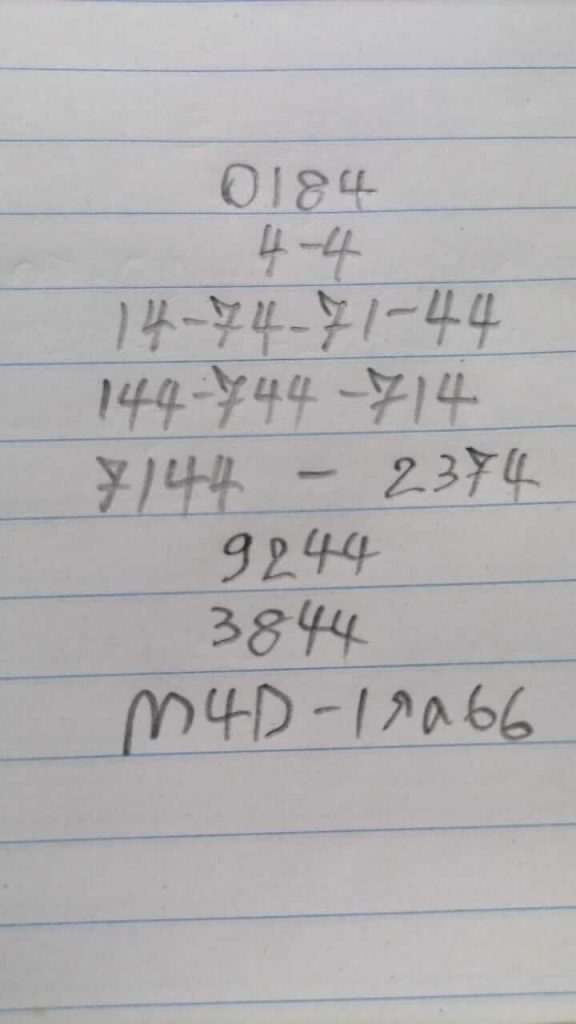 0184
4-4
14-74-71-44
144-744-714
7144 - 2374
9244
3844
M4D-1วด66